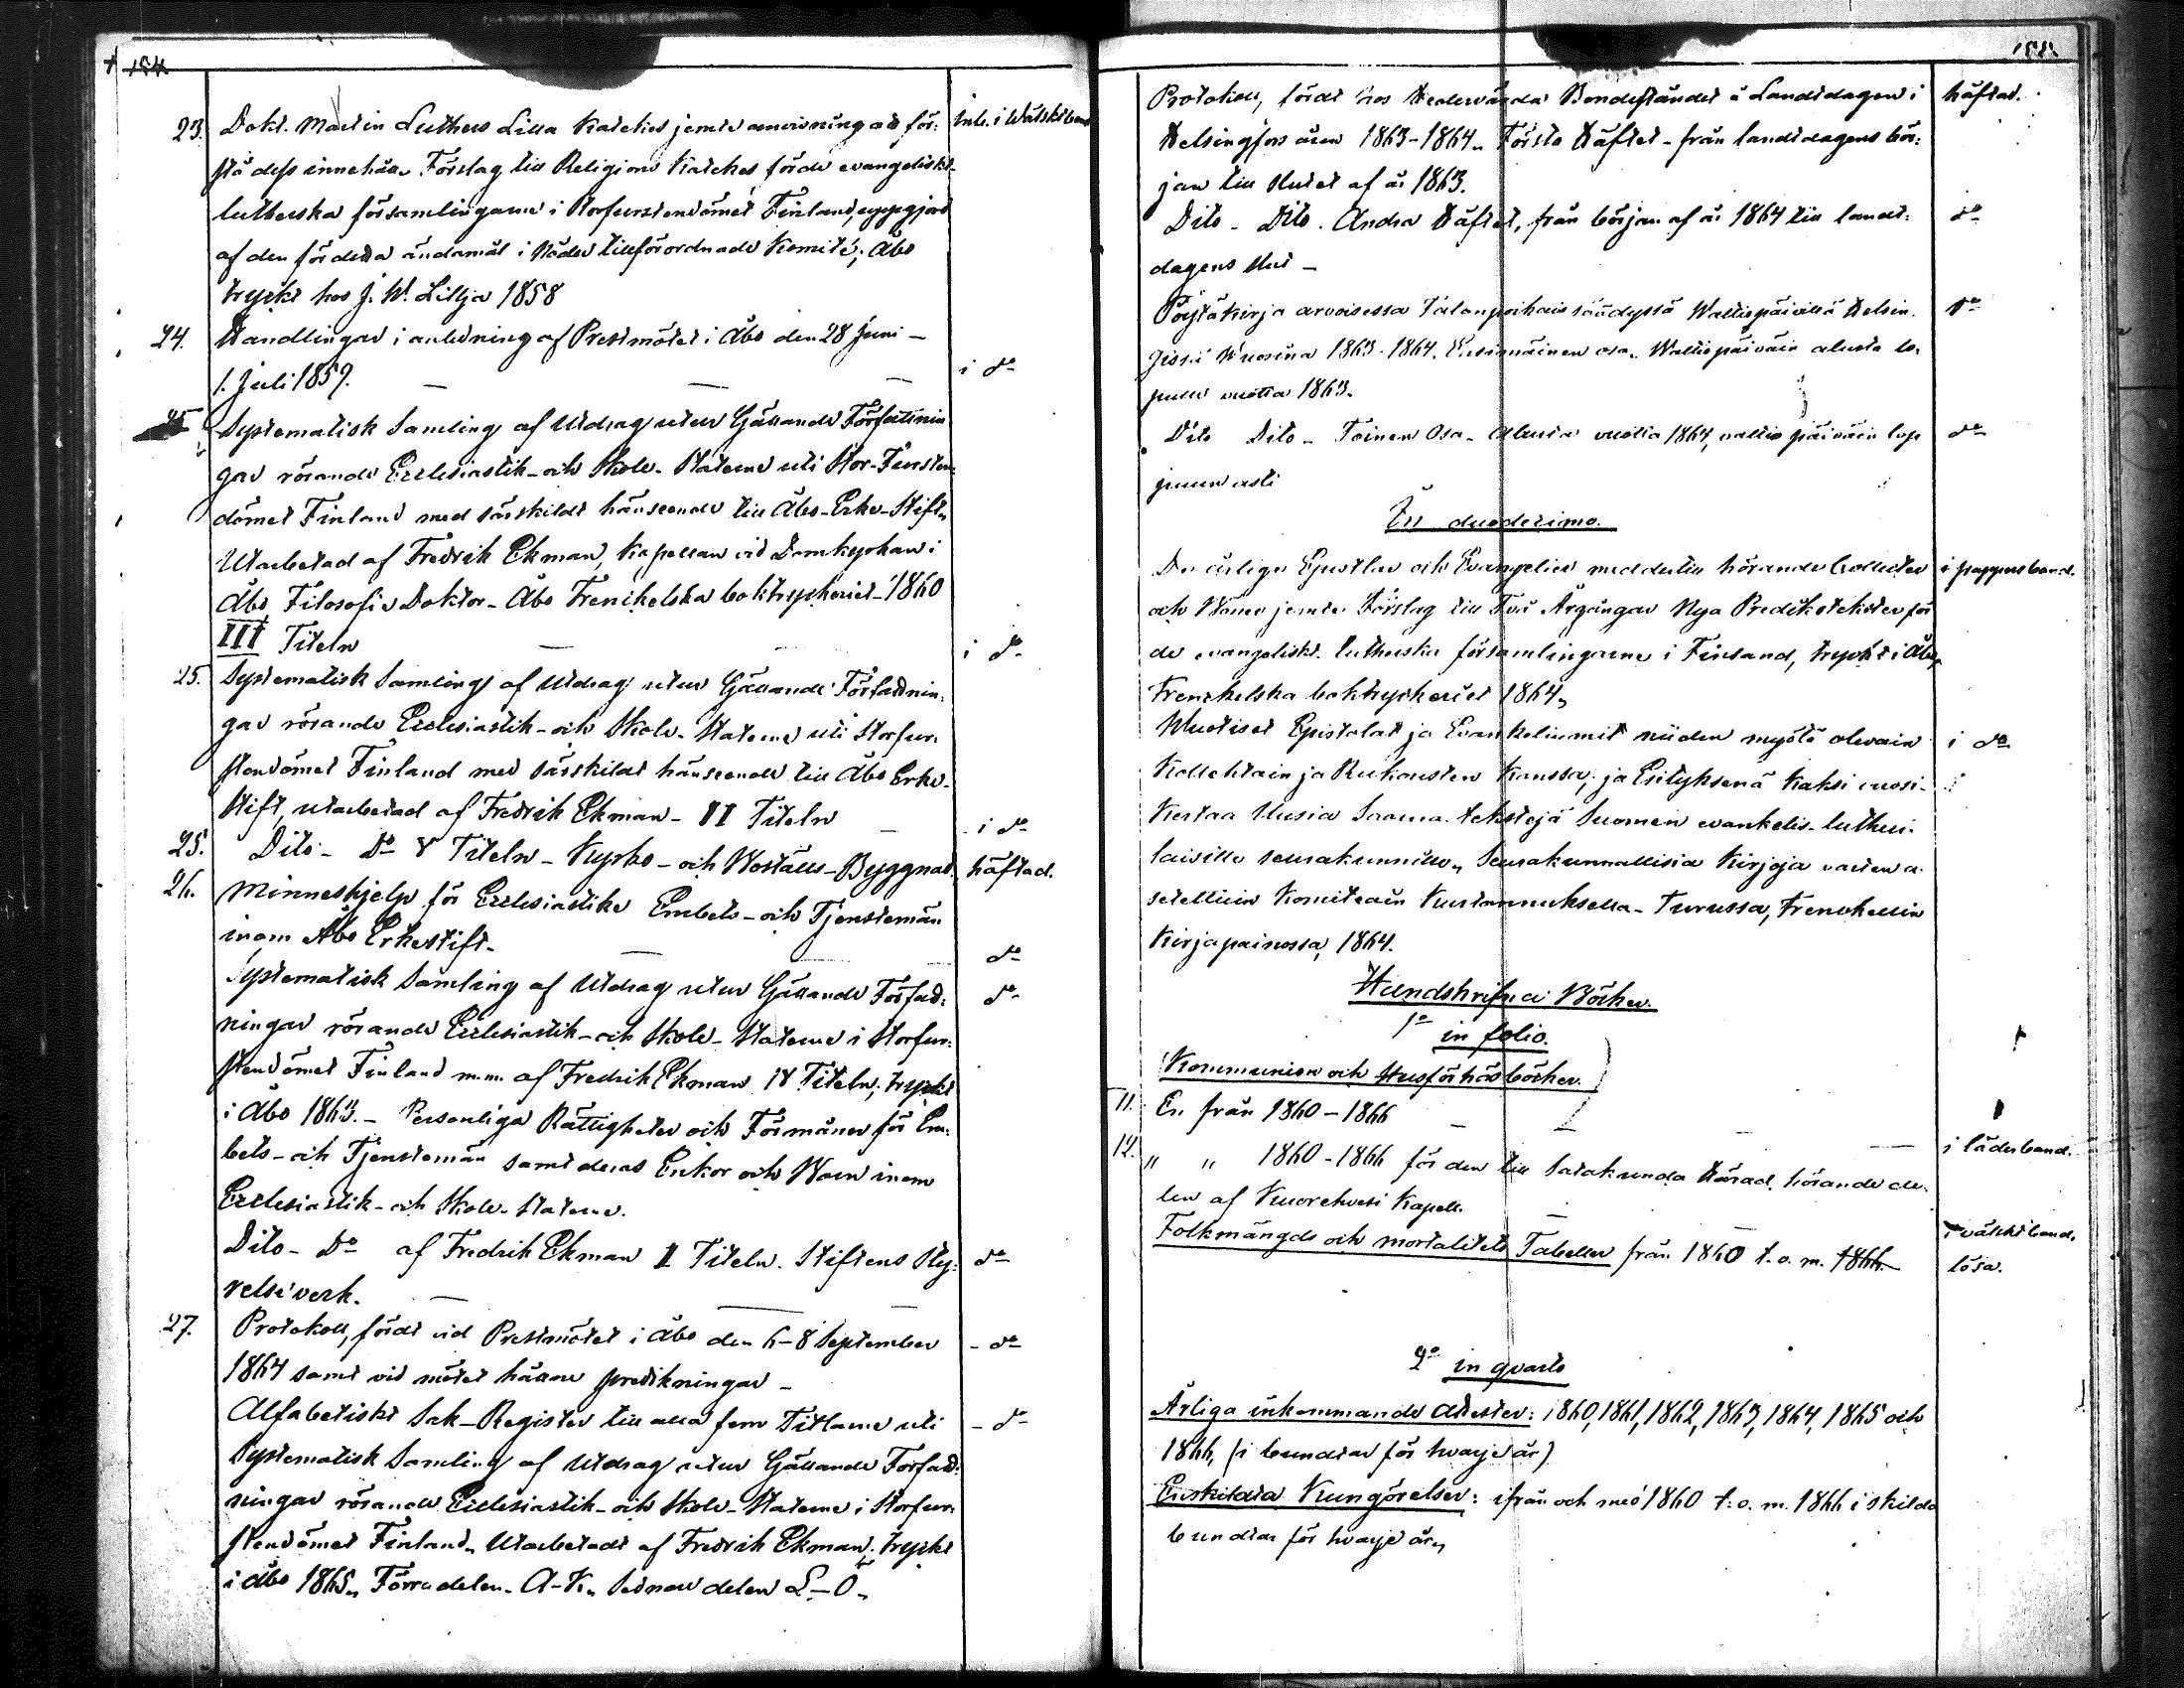 154.
23. Dokt. Martin Luthers Lilla Kateches jemte anvisning att för: Inb. i Wälskt band
stå dess innehåll. Förslag till Religions Kateches för de evangeliskt-
lutherska församlingarne i Storfurstendömet Finland, uppgjord
af den för detta ändamål i Nåder tillförordnade Komité; Åbo
tryckt hos J. W. Lillja 1858
24. Handlingar i anledning af Prestmötet i Åbo den 28 Juni –
1. Juli 1859. — — — i do
25 Systematisk Samling af Utdrag utur Gällande Författnin
gar rörande Ecclesiastik- och Skole- Staterne uti Stor-Fursten:
dömet Finland med särskildt hänseende till Åbo-Erke-Stift,
Utarbetad af Fredrik Ekman, Kapellan vid Domkyrkan i
Åbo Filosofie Doktor - Åbo Frenckelska boktryckeriet - 1860
III Titeln — — i do
25. Systematisk Samling af Utdrag utur Gällande Författnin:
gar rörande Ecclesiastik- och Skole- Staterne uti Storfur:
stendömet Finland med särskildt hänseende till Åbo Erke-
stift, utarbetad af Fredrik Ekman - VI Titeln — - i do
25. Dito - Do V Titeln - Kyrko- och Boställs-Byggnad. häftad.
26. Minneshjelp för Ecclesiastike Embets- och Tjenstemän
inom Åbo Erkestift. — do
Systematisk Samling af Utdrag utur Gällande Författ: do
ningar rörande Ecclesiastik- och Skole- Staterne i Storfur:
stendömet Finland m.m. af Fredrik Ekman IV Titeln; tryckt
i Åbo 1863. - Personliga Rättigheter och Förmåner för Em:
bets- och Tjenstemän samt deras Enkor och Barn inom
Ecclesiastik- och Skole- Staterne.
Dito - Do af Fredrik Ekman II Titeln. Stiftens Sty: do
relseverk. — — —
27. Protokoll, fördt vid Prestmötet i Åbo den 6-8 September - do
1864 samt vid mötet hållne predikningar -
Alfabetiskt Sak-Register till alla fem Titlarne uti - do
Systematisk Samling af Utdrag utur Gällande Författ:
ningar rörande Ecclesiastik- och Skole- Staterne i Storfur:
stendömet Finland. Utarbetadt af Fredrik Ekman. tryckt
i Åbo 1865. Förra delen. A-K. Sednare delen L-Ö.
Protokoll, fördt hos Hedervärda Bondeståndet å Landtdagen i häftad.
Helsingfors åren 1863-1864. Första Häftet - från landtdagens bör:
jan till slutet af år 1863.
Dito - Dito. Andra Häftet, från början af år 1864 till landt: do
dagens slut -
Pöytäkirja arvoisessa Talonpoikaissäädyssä Waltiopäivillä Helsin. do
gissä Wuosina 1863-1864. Ensimäinen osa. Waltiopäiväin alusta lo-
pulle vuotta 1863.
Dito Dito - Toinen Osa - Alusta vuotta 1864, valtiopäiväin lop do
puun asti
In duodecimo.
De årliga Epistlar och Evangelier med dertill hörande Collecter i pappersband.
och Böner jemte Förslag till Två Årgångar Nya Predikotexter för
de evangeliskt. lutherska församlingarne i Finland, tryckt i Åbo,
Frenckelska boktryckeriet 1864.
Wuotiset Epistolat ja Evankeliumit niiden myötä olevain i do
Kollehtain ja Rukousten Kanssa; ja Esityksenä Kaksi vuosi-
Kertaa Uusia Saarna-tekstejä Suomen evankelis-luthi:
laisille seurakunnille. Seurakunnallisia Kirjoja varten a-
setellun Komiteain Kustannuksella - Turussa, Frenckellin
Kirjapainossa, 1864.
Handskrifna Böcker.
1o in folio.
Kommunion och Husförhörsböcker.
11. En från 1860-1866 — — —
12. " " 1860-1866 för den till Satakunda Härad, hörande de- i läderband.
len af Kuorehvesi Kapell. — —
Folkmängds och mortalitets Tabeller från 1860 t. o. m. 1866. lösa.
2o in qvarto
Årliga inkommande Attester: 1860, 1861, 1862, 1863, 1864, 1865 och
1866, (i bundtar för hvarje år)
Enskildta Kungörelser: ifrån och med 1860 t. o. m. 1866 i skilda
bundtar för hvarje år.